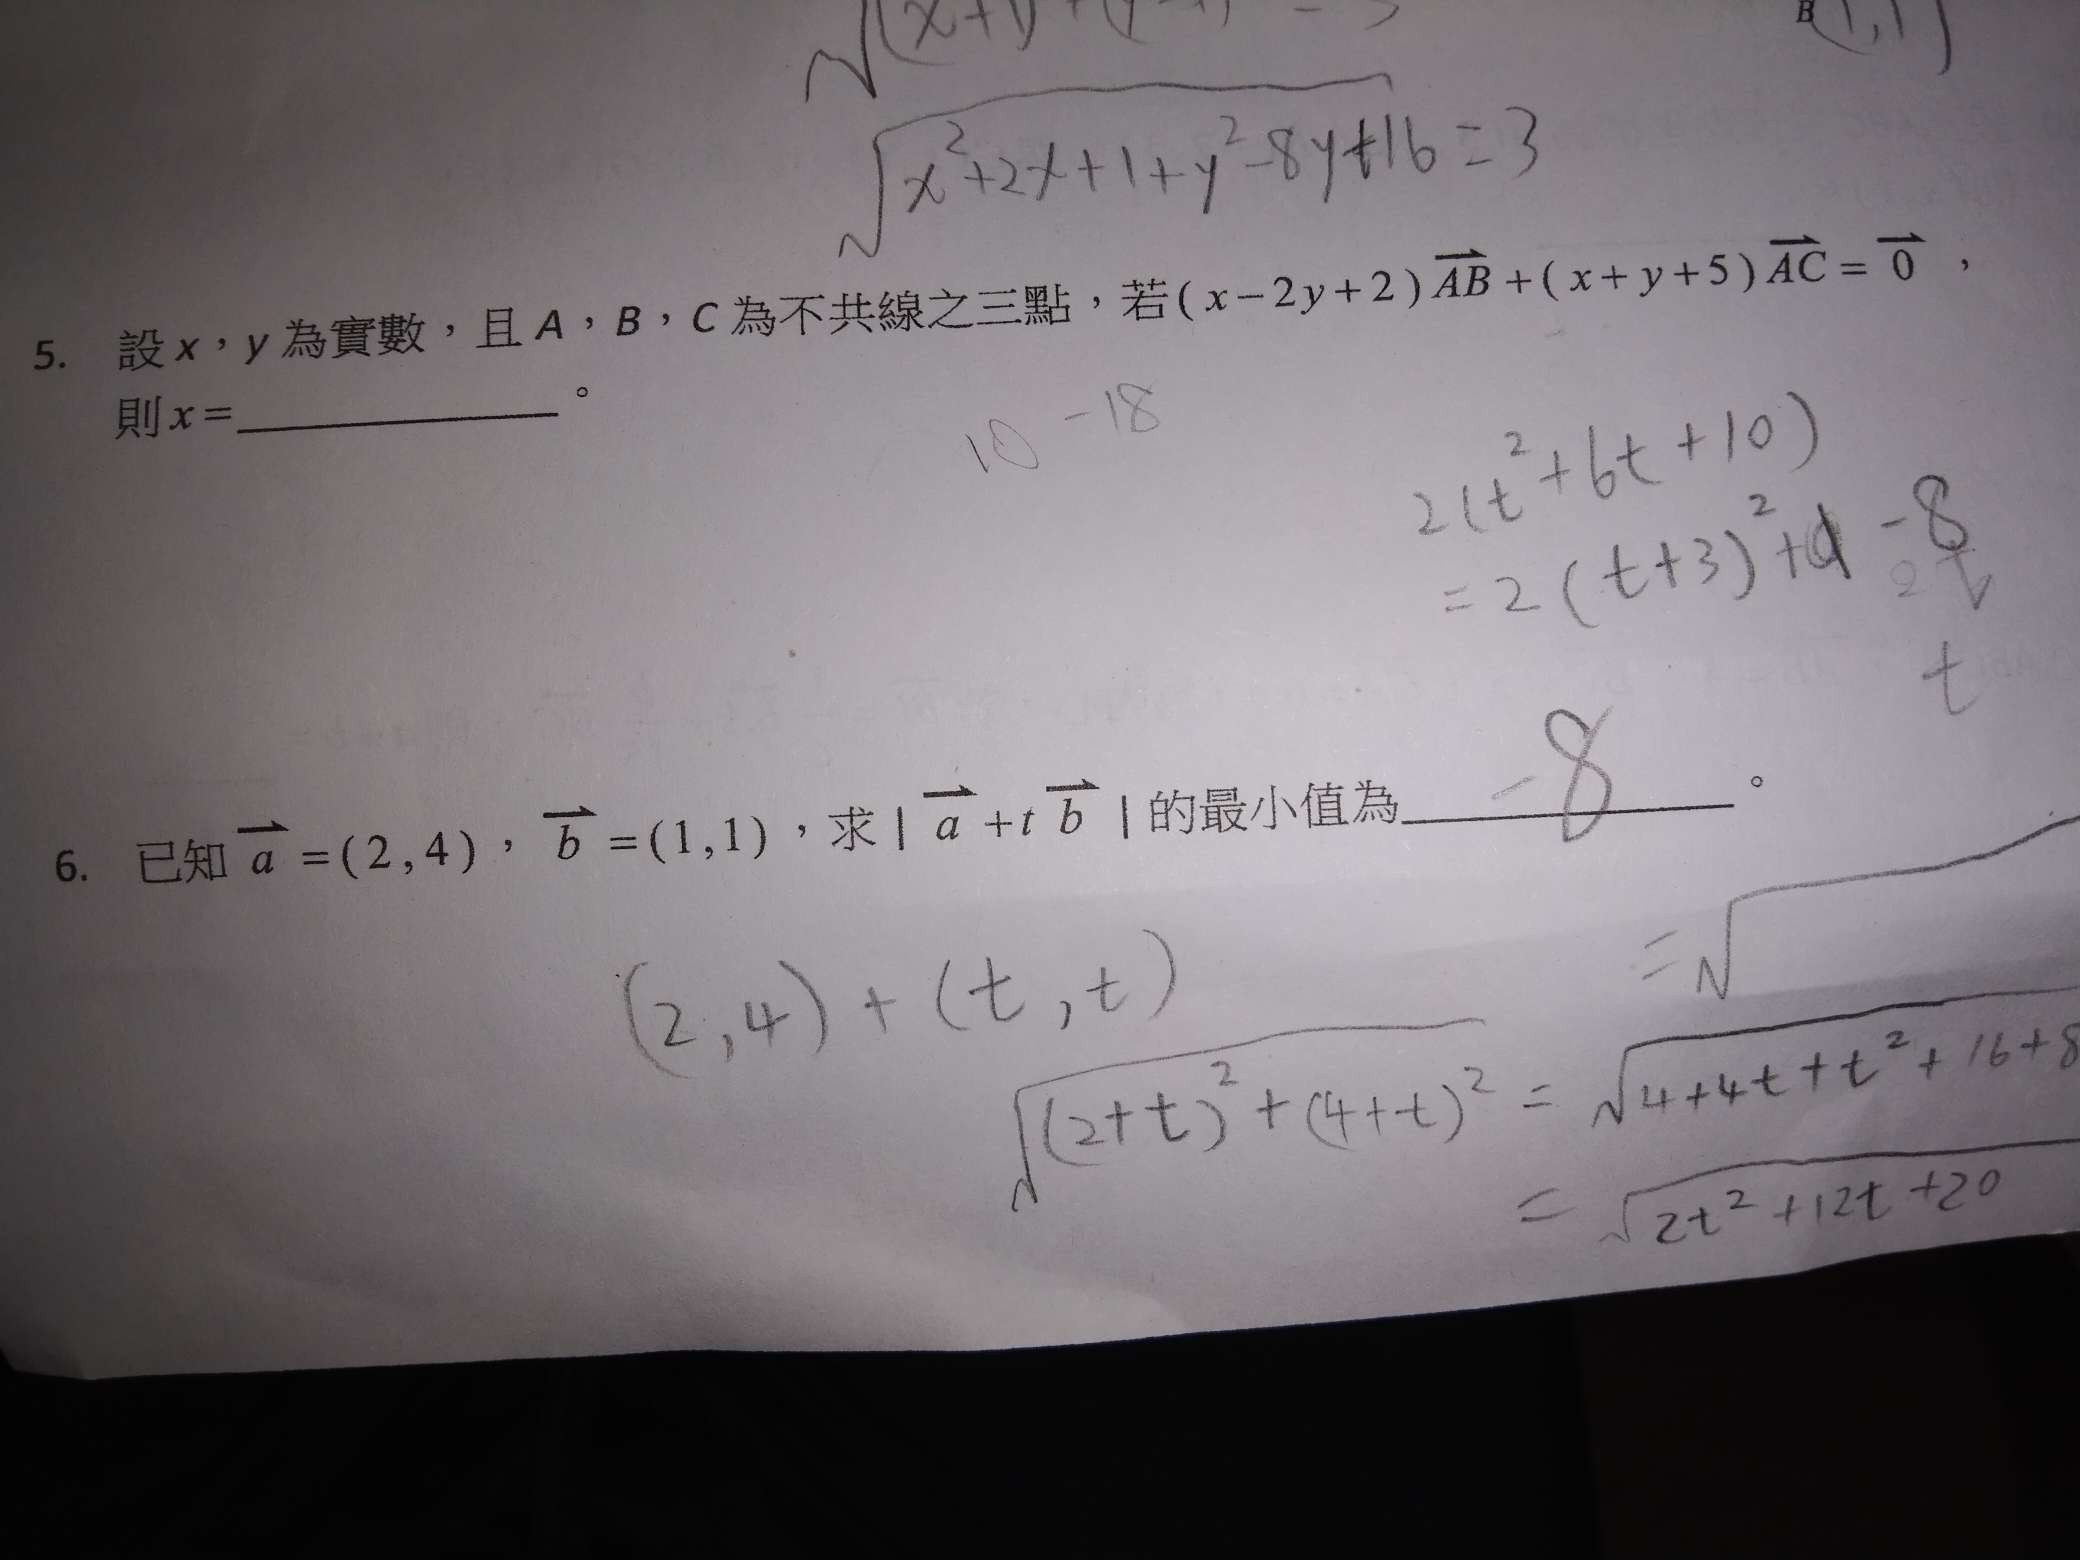 B(1,1)
√x²+2x+1+y²-8y+16=3
5. 設 x，y 為實數，且 A，B，C 為不共線之三點，若(x−2y+2)AB+(x+y+5)AC=0，
則 x=＿＿＿＿＿＿。
10 -18
2(t²+6t+10)
=2(t+3)²+1 -8
t
6. 已知 a=(2,4)，b=(1,1)，求| a+t b |的最小值為 -8 。
(2,4)+(t,t)
=√
√(2+t)²+(4+t)² = √4+4t+t²+16+8
= √2t²+12t+20